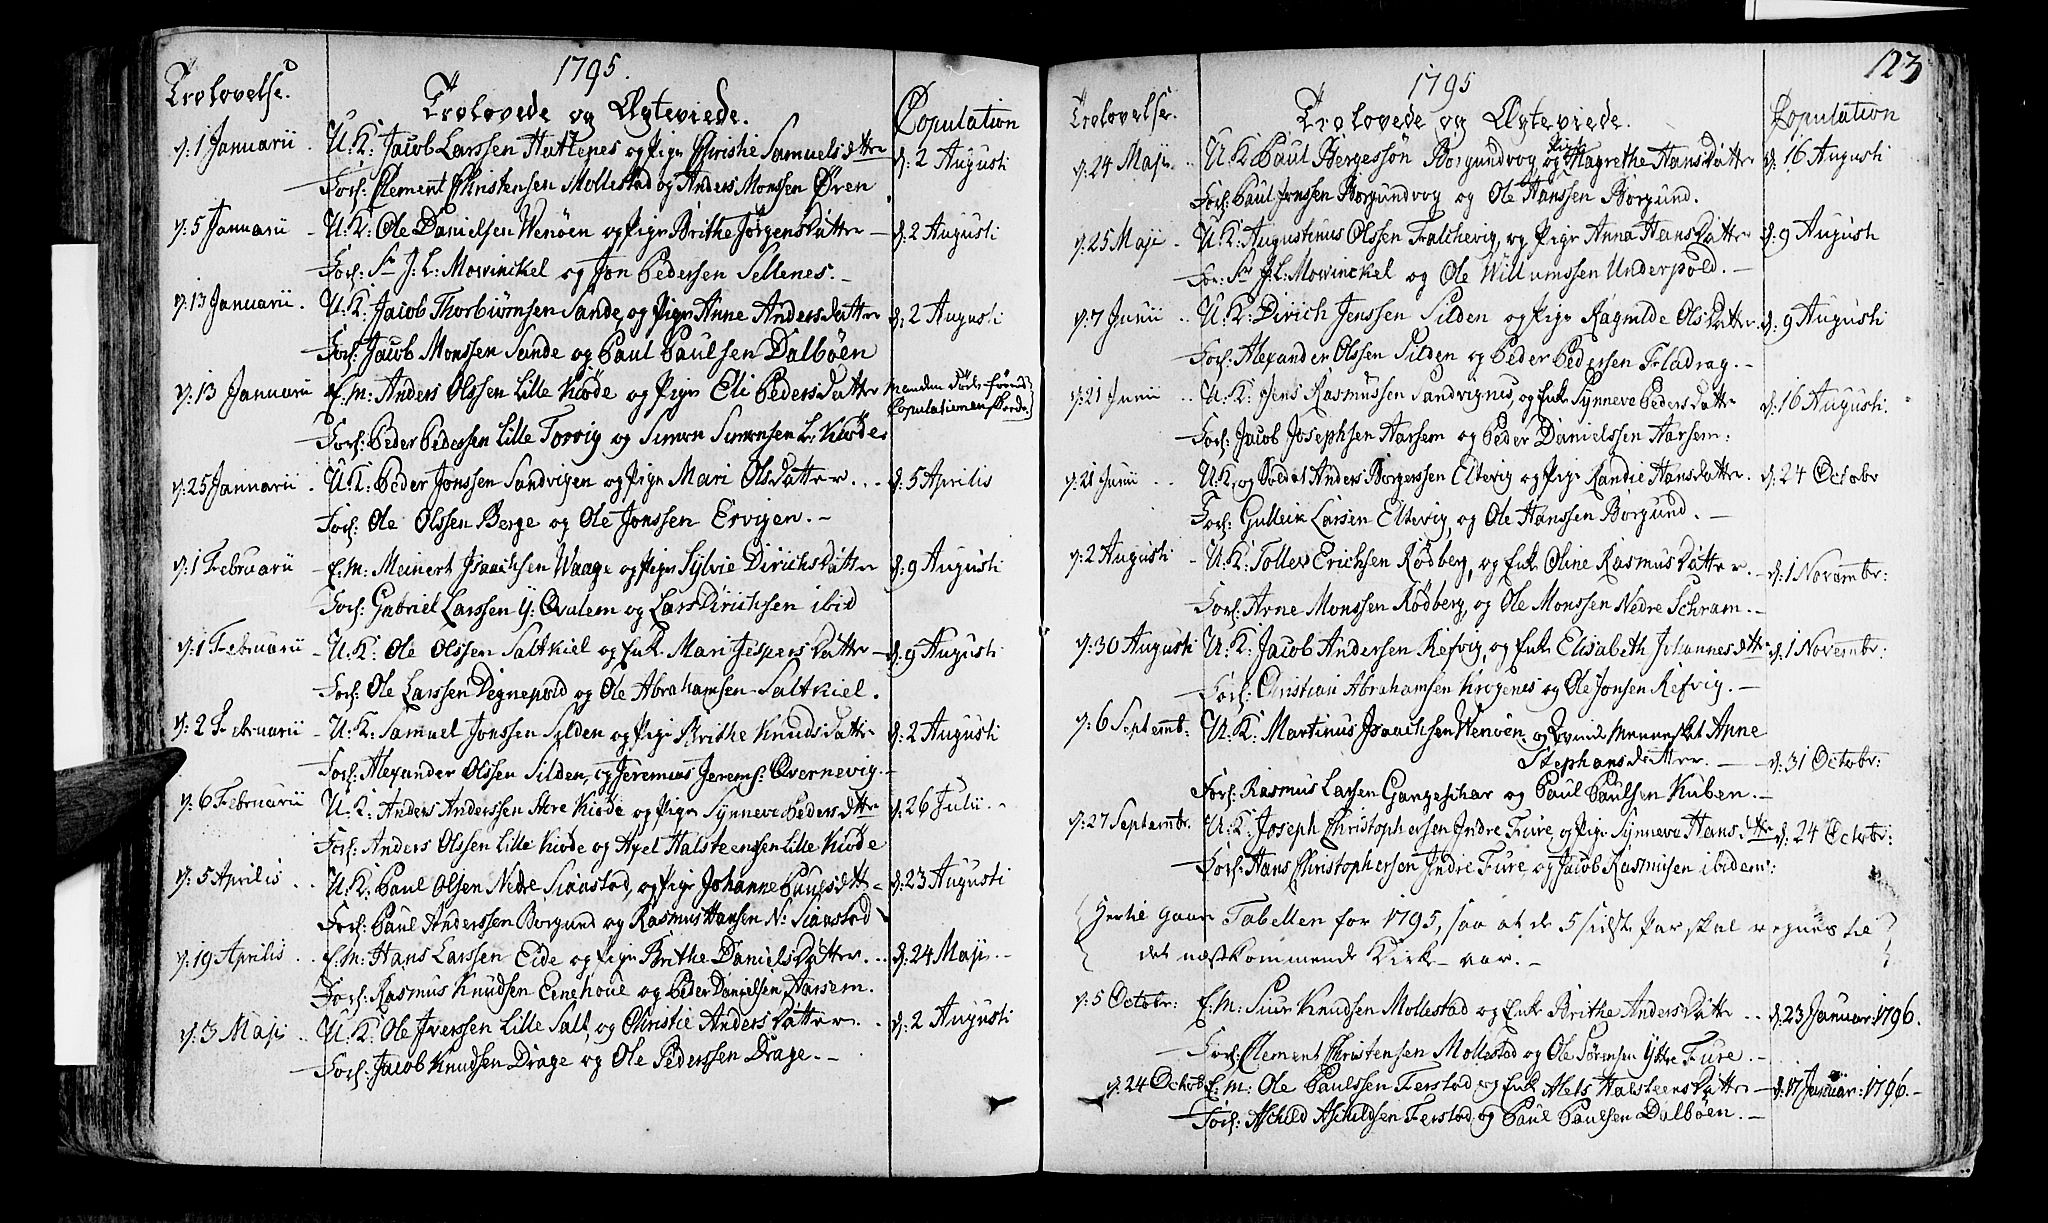 1795.
Trolovelse.
Trolovede og Ægteviede.
Copulation
d: 1 Januarii. U.K: Jacob Larssen Hattenes og Pige Christie Samuelsdttr d: 2 Augusti
Forl: Clement Christensen Mollestad og Anders Monssen Øren
d: 5 Januarii – U.K: Ole Danielsen Wenøen og Pige Brithe Jørgensdatter – d: 2 Augusti
Forl: Sr J: L: Mowinckel og Jon Pedersen Sellenes. –
d: 13 Januarii. U.K: Jacob Thorbiørnsen Sande og Pige Anne Andersdatter d: 2 Augusti
Forl: Jacob Monssen Sande og Paul Paulsen Dalbøen
d: 13 Januarii E.M: Anders Olssen Lille Kiøde og Pige Eli Pedersdatter Manden døde førend
Copulationen skeede.
Forl: Peder Pedersen Lille Torvig og Simon Simonsen L: Kiøde
d: 25 Januarii. U.K: Peder Jonssen Sandvigen og Pige Mari Olsdatter... d: 5 Aprilis
Forl: Ole Olssen Berge og Ole Jonssen Ervigen. –
d: 1 Februarii – E.M: Meinert Isaachsen Waage og Pige Sylvie Dirichsdatter d: 9 Augusti
Forl: Gabriel Larssen Y: Qvalem og Lars Dirichsen ibid
d: 1 Februarii – U.K: Ole Olssen Saltkiel og Enke Mari Jespersdatter – d: 9 Augusti
Forl: Ole Larssen Degnepold og Ole Abrahamsen Saltkiel.
d: 2 Februarii – U.K: Samuel Jonssen Silden og Pige Brithe Knudsdatter d: 2 Augusti
Forl: Alexander Olssen Silden, og Jeremias Jerems: Overnevig. –
d: 6 Februarii U.K: Anders Anderssen Store Kiøde og Pige Synneve Pedersdttr d: 26 Julii. –
Forl: Anders Olssen Lille Kiøde og Axel Halsteensen Lille Kiøde
d: 5 Aprilis .. U.K: Paul Olsen Nedre Siaastad, og Pige Johanne Paulsdttr – d: 23 Augusti
Forl: Paul Anderssen Borgund og Rasmus Hansen N: Siaastad
d: 19 Aprilis .. E.M: Hans Larssen Eide og Pige Brithe Danielsdatter... d: 24 Maji. –
Forl: Rasmus Knudsen Eenehoue og Peder Danielsen Harsem.
d: 3 Maji .. U.K: Ole Iverssen Lille Salt, og Christie Andersdatter.. d: 2 Augusti
Forl: Jacob Knudsen Drage og Ole Pederssen Drage. –
123
1795
Trolovelse.
Trolovede og Ægteviede.
Copulation
d: 24 Maji .. U.K: Paul Børgessøn Borgundvog og Pige Magrethe Hansdatter d: 16 Augusti
Forl: Paul Jonssen Borgundvog og Ole Hanssen Borgund.
d: 25 Maji – U.K: Augustinus Olssen Falchevig, og Pige Anna Hansdatter d: 9 Augusti
For: Sr J: L: Mowinckel og Ole Willumssen Underpold. –
d: 7 Junii .. U.K: Dirich Jenssen Silden og Pige Ragnilde Olsdatter d: 9 Augusti
Forl: Alexander Olssen Silden og Peder Pedersen Fladrag. –
d: 21 Junii .. U.K: Jens Rasmussen Sandvignes, og Enke Synneve Pedersdatter d: 16 Augusti.
Forl: Jacob Josephsen Harsem og Peder Danielssen Harsem:
d: 21 Junii .. U.K, og Soldat Anders Børgerssen Eltevig og Pige Randie Hansdatter. d: 24 Octobr
Forl: Gulleik Larsen Eltevig, og Ole Hanssen Borgund. –
d: 2 Augusti – U.K: Tollev Erichsen Rødberg, og Enke Oline Rasmusdatter. – d: 1 Novembr:
Forl: Arne Monssen Rødberg, og Ole Monssen Nedre Schram. –
d: 30 Augusti U.K: Jacob Andersen Refvig, og Enke Elisabeth Johannesdttr d: 1 Novembr:
Forl: Christian Abrahamsen Krogenes og Ole Jonsen Refvig. –
d: 6 Septembr: U.K: Martinus Isaachsen Wenøen og Qvinde Mennesket Anne
Stephansdatter. – d: 31 Octobr:
Forl: Rasmus Larsen Gangesichar og Paul Paulsen Kuben. –
d: 27 Septembr. U.K: Joseph Christophersen Indre Fure og Pige Synneva Hansdttr d: 24 Octobr:
Forl: Hans Christophersen Indre Fure og Jacob Rasmusen ibidem:
Hertil gaaer Tabellen for 1795, saa at de 5 sidste Par skal regnes til
det næstkommende Kirke-aar. –
d: 5 Octobr: E.M: Siur Knudsen Mollestad og Enke Brithe Andersdattr .. d: 23 Januar: 1796.
Forl: Clement Christensen Mollestad og Ole Sørensen Ytre Fure. –
d: 24 Octob E.M: Ole Paulssen Ferstad og Enke Alets Halsteensdatter – d: 17 Januar: 1796. –
Forl: Aschild Aschildsen Ferstad, og Paul Paulsen Dalbøen. –